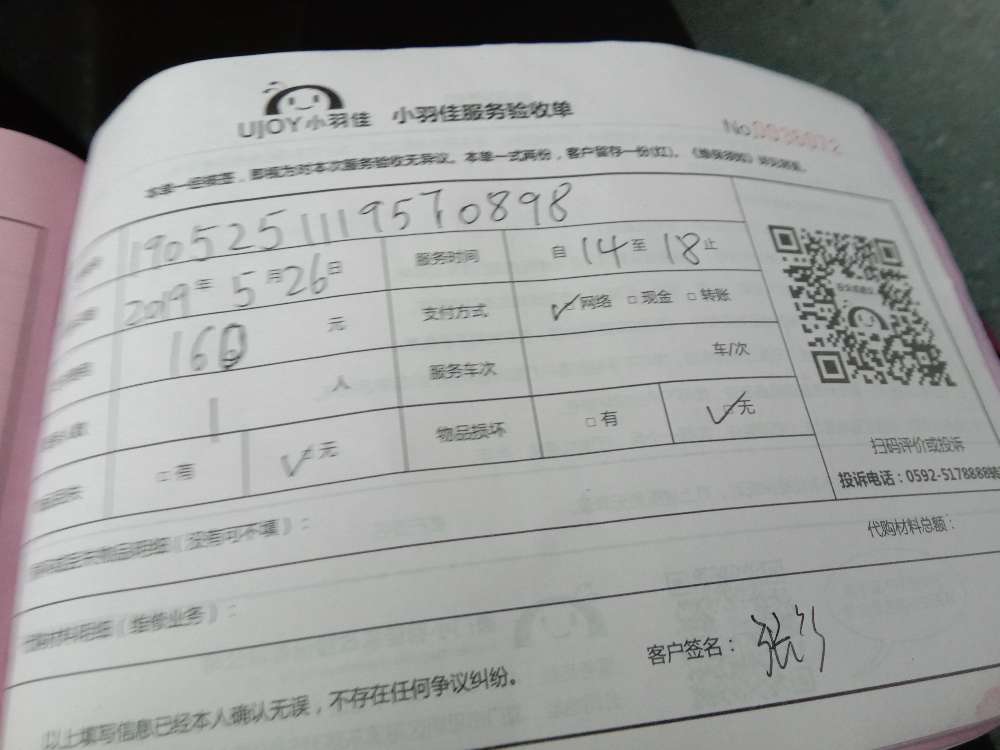 UJOY小羽佳 小羽佳服务验收单
No.0036072
本单一经接签，即视为对本次服务验收无异议。本单一式两份，客户留存一份(红)。
190525111957 0898
2019年5月26日 服务时间 自14至18止
160元 支付方式 ✓网络 □现金 □转账
1人 服务车次 车/次
□有 ✓无 物品损坏 □有 ✓无
扫码评价或投诉
投诉电话：0592-5178888转
物品明细（没有可不填）：
代购材料明细（维修业务）： 代购材料总额：
客户签名：
以上填写信息已经本人确认无误，不存在任何争议纠纷。